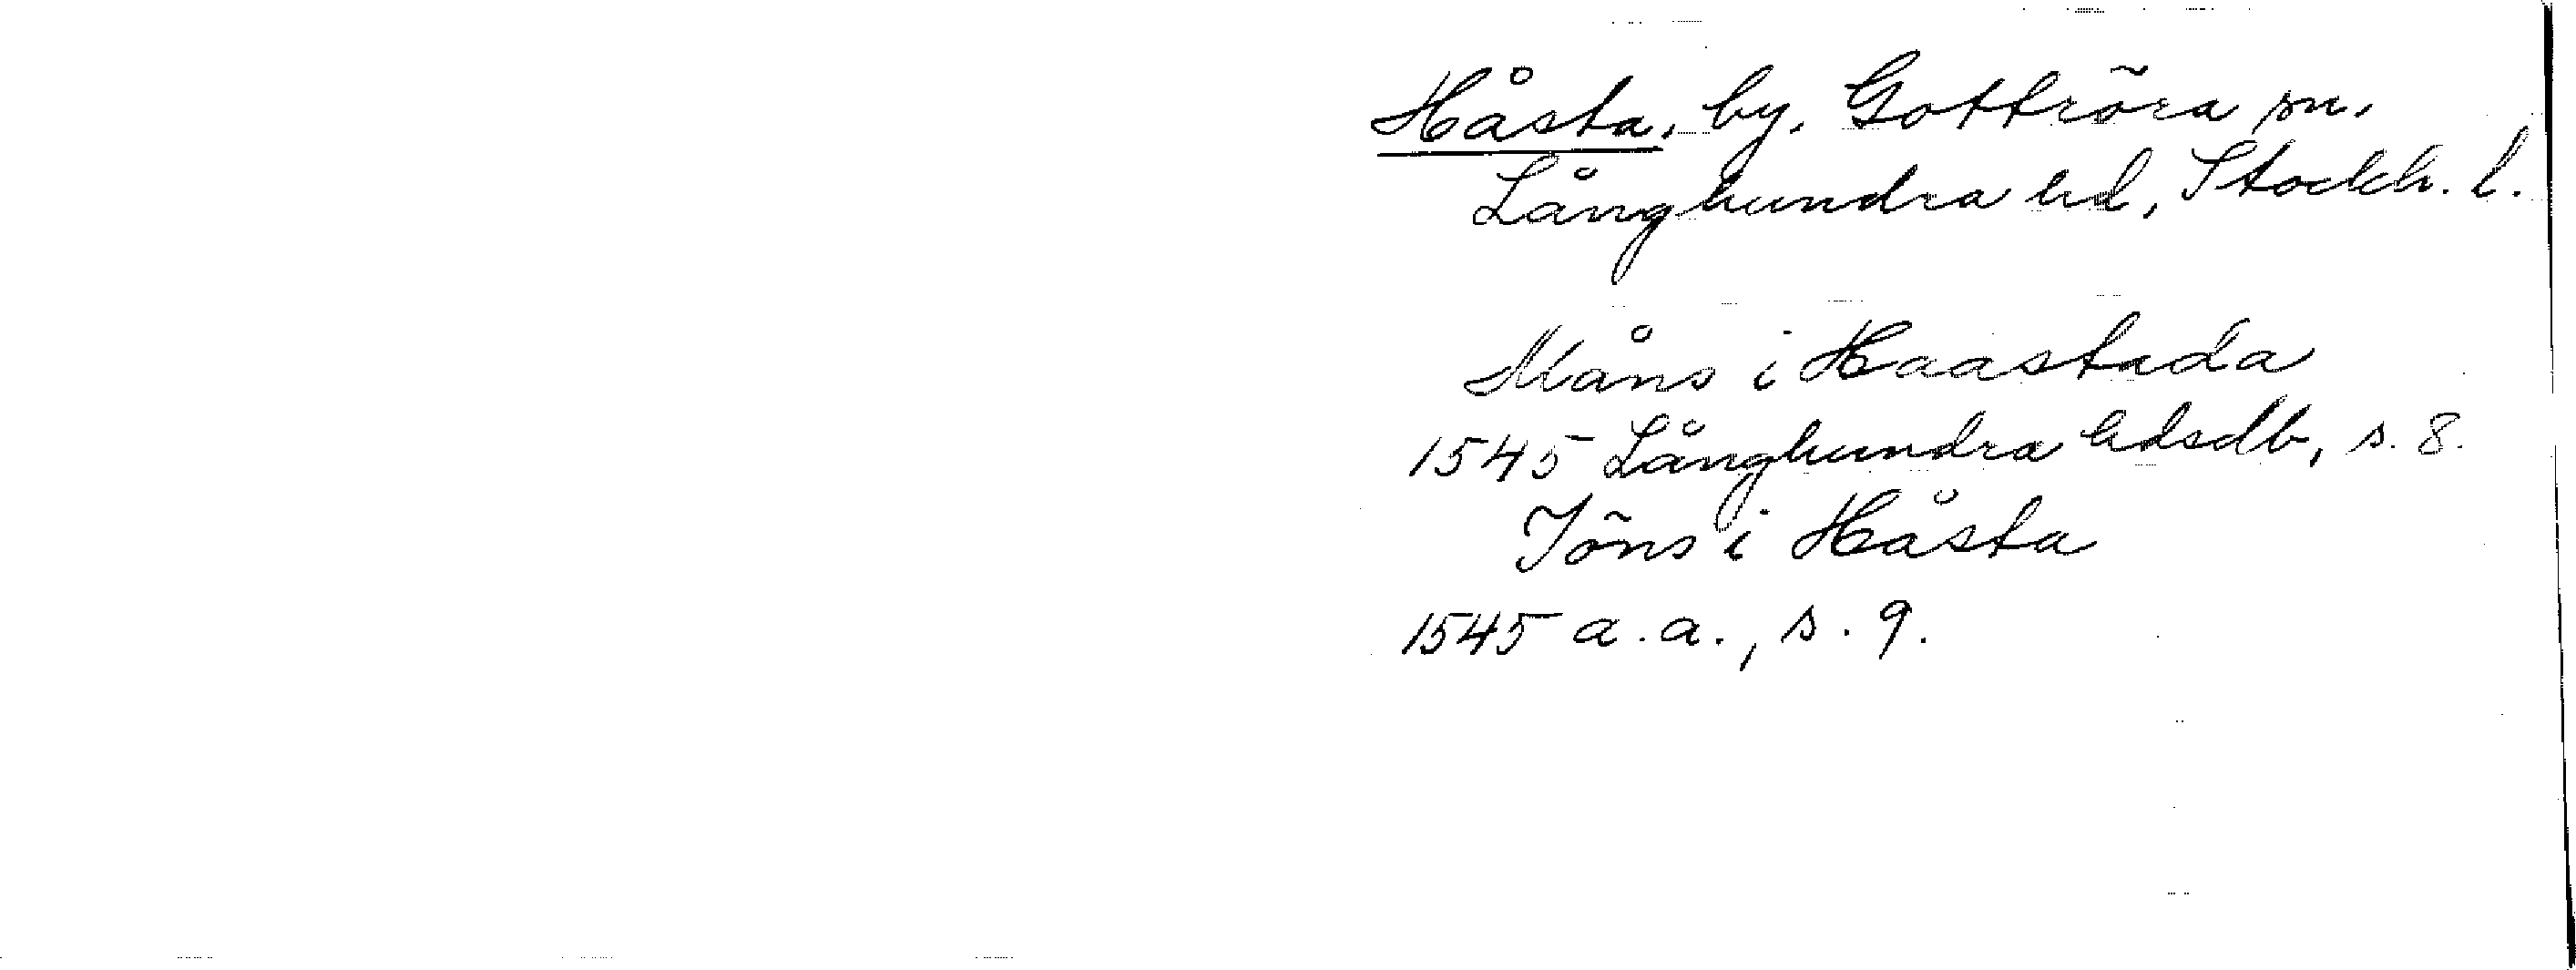 Håsta, by, Gottröra sn.
Långhundra hd, Stockh. l.
Måns i Haastada
1545 Långhundra hdsdb, s. 8.
Jöns i Håsta
1545 a.a., s. 9.